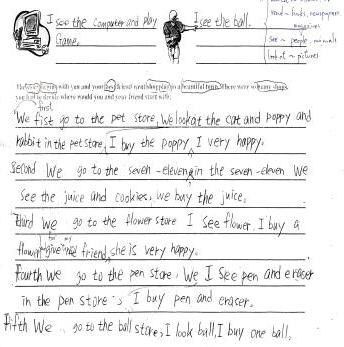 read ~ books, newspapers,
magazines
see ~ people, animals
look at ~ pictures
I see the computer and play
Game.
I see the ball.
with you and your best friend went shopping in a beautiful town. There were so many shops,
you had to decide where would you and your friend start with.
first
We fist go to the pet store, We look at the cat and poppy and
rabbit in the pet store, I buy the poppy, I very happy.
Second We go to the seven-eleven, in the seven-eleven We
see the juice and cookies, we buy the juice.
Third We go to the flower store I see flower, I buy a
flower give my friend, she is very happy.
Fourth We go to the pen store, We I See pen and eraser
in the pen store, I buy pen and eraser.
Fifth We go to the ball store, I look ball, I buy one ball,